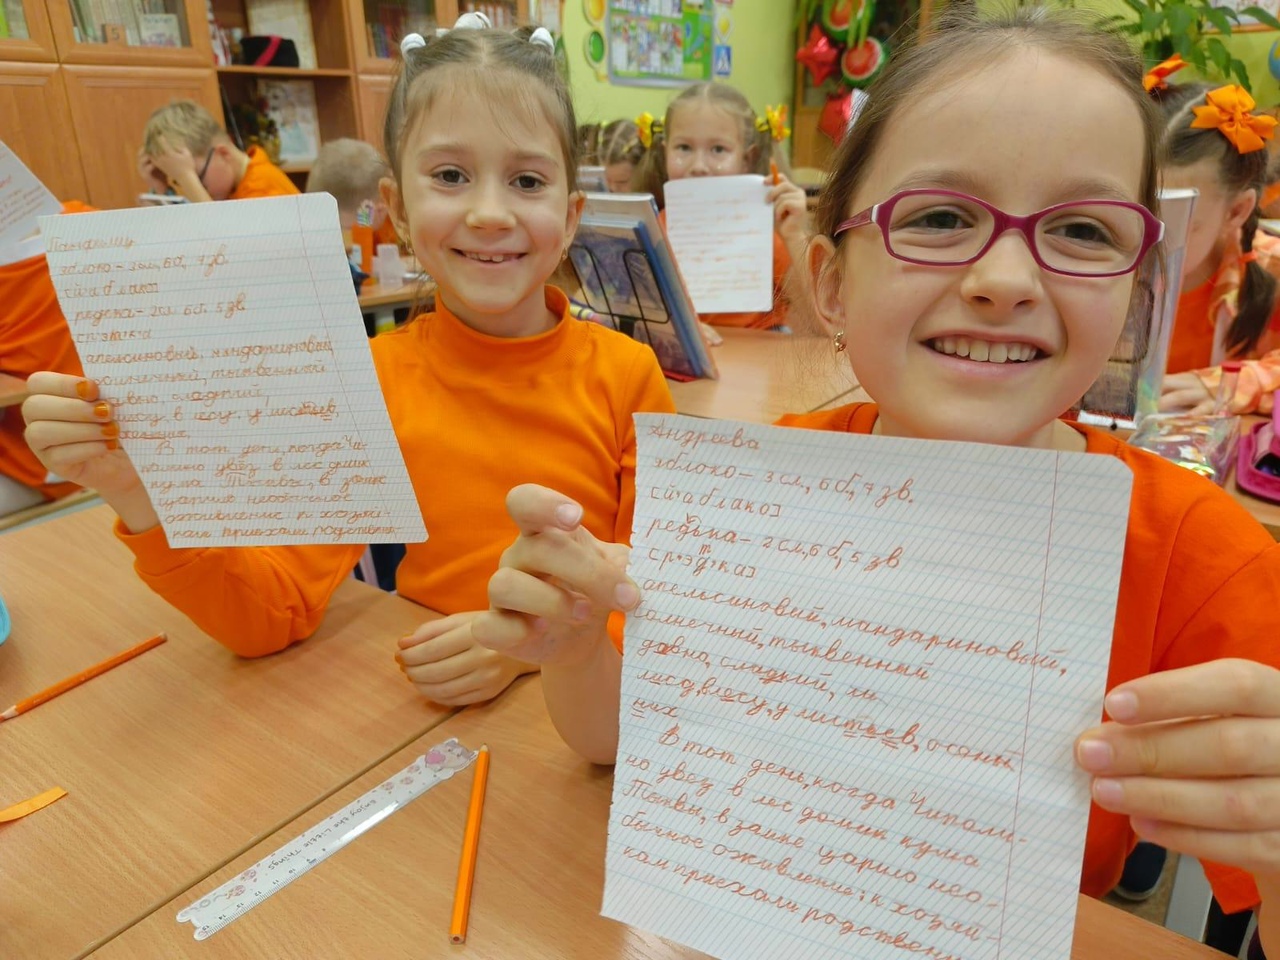 Панфилу
яблоко – 3 сл, 6 б, 7 зв.
[й'аблако]
редька – 2 сл. 6 б. 5 зв
апельсиновый, мандариновый
солнечный, тыквенный
давно, сладкий,
лесу, у листьев,
В тот день, когда Чи-
полино увёз в лес домик
кума Тыквы, в замке
царило необычное
оживление: к хозяй-
кам приехали родственни-
Андреева
яблоко – 3 сл., 6 б, 7 зв.
[й'аблако]
редька – 2 сл, 6 б, 5 зв
[р'эт'ка]
апельсиновый, мандариновый,
солнечный, тыквенный
давно, сладкий, ли
лиса, в лесу, у листьев, о соный
них
В тот день, когда Чиполи-
но увёз в лес домик кума
Тыквы, в замке царило нео-
бычное оживление: к хозяй-
кам приехали родственн
Enjoy the Little Things